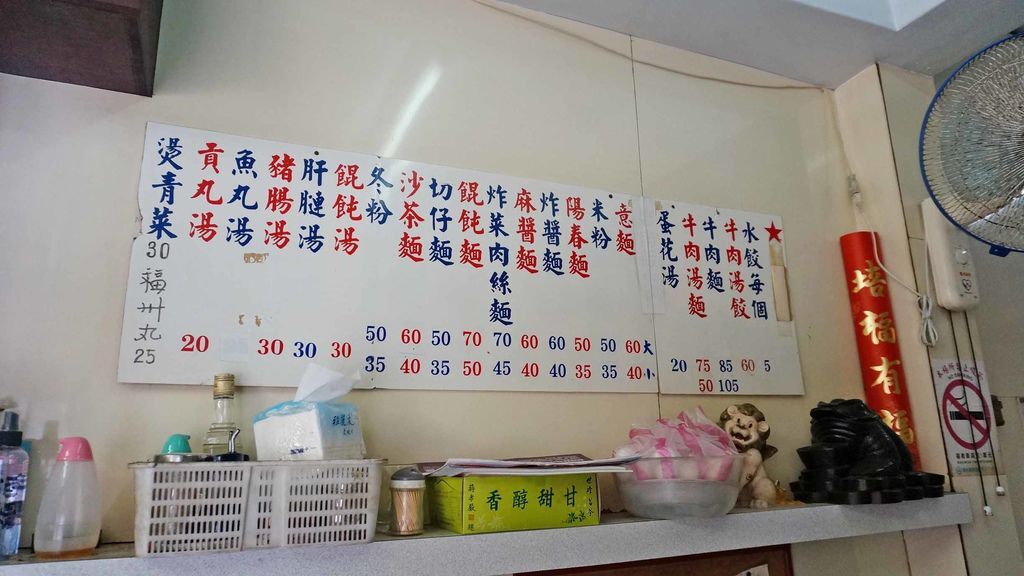 ★水餃每個
牛肉湯餃
牛肉麵
牛肉湯麵
蛋花湯
意麵
米粉
陽春麵
炸醬麵
麻醬麵
炸菜肉絲麵
餛飩麵
切仔麵
沙茶麵
冬粉
餛飩湯
肝膢湯
豬腸湯
魚丸湯
貢丸湯
燙青菜
30
福州丸
25
20 30 30 30
50 60 50 70 70 60 60 50 50 60 大
35 40 35 50 45 40 40 35 35 40 小
20 75 85 60 5
50 105
培福有福
香醇甜甘